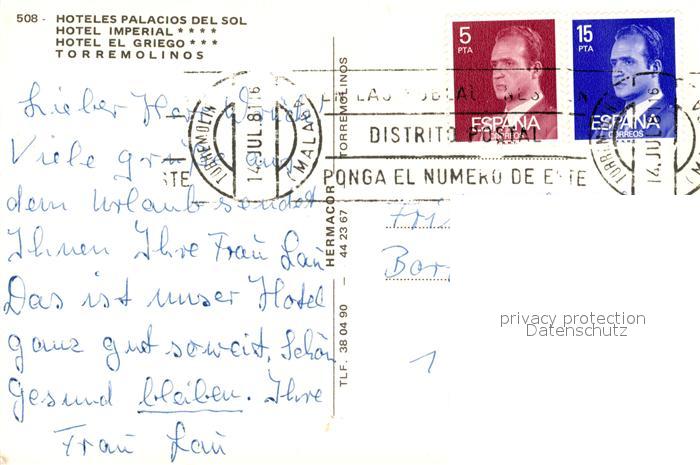 508 - HOTELES PALACIOS DEL SOL
HOTEL IMPERIAL ****
HOTEL EL GRIEGO ***
TORREMOLINOS
Lieber Herr
Viele grüße aus
dem Urlaub sendet
Ihnen Ihre Frau Lau
Das ist unser Hotel
ganz gut soweit. Schön
Gesund bleiben. Ihre
Frau Lau
HERMACOR TORREMOLINOS
TLF. 38 04 90 — 44 23 67
5
PTA
ESPAÑA
CORREOS
15
PTA
ESPAÑA
CORREOS
TORREMOLIN
14 JUL. 81 16
MALAGA
DISTRITO POSTAL
PONGA EL NUMERO DE ESTE
STE
14 JUL
1
privacy protection
Datenschutz